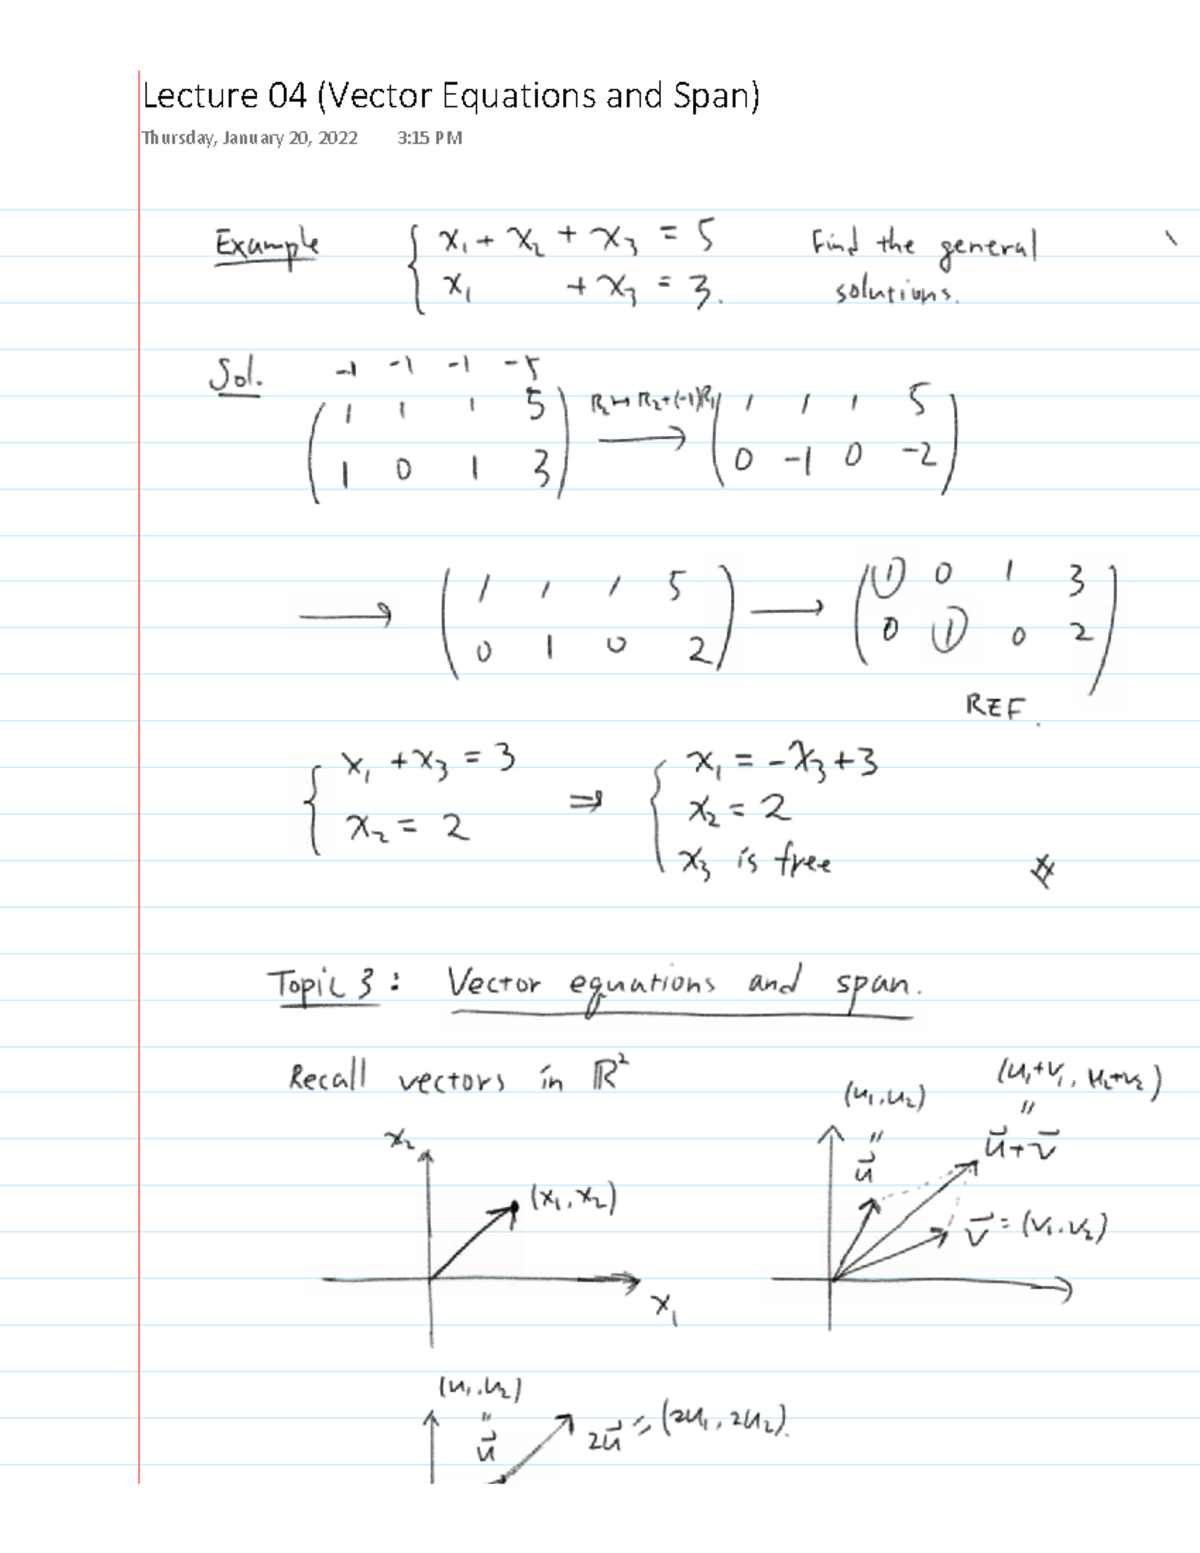 Lecture 04 (Vector Equations and Span)
Thursday, January 20, 2022 3:15 PM
Example { x₁ + x₂ + x₃ = 5 Find the general
x₁ + x₃ = 3. solutions.
Sol. -1 -1 -1 -5
( 1 1 1 5 ) R₂↔R₂+(-1)R₁ ( 1 1 1 5 )
( 1 0 1 3 ) → ( 0 -1 0 -2 )
→ ( 1 1 1 5 ) → ( ① 0 1 3 )
( 0 1 0 2 ) ( 0 ① 0 2 )
REF.
{ x₁ + x₃ = 3 ⇒ { x₁ = -x₃ + 3
x₂ = 2 x₂ = 2
x₃ is free #
Topic 3: Vector equations and span.
Recall vectors in ℝ²
(u₁, u₂) (u₁+v₁, u₂+v₂)
x₂ = u⃗ = u⃗+v⃗
(x₁, x₂) v⃗ = (v₁, v₂)
x₁
(u₁, u₂)
= u⃗ 2u⃗ = (2u₁, 2u₂).